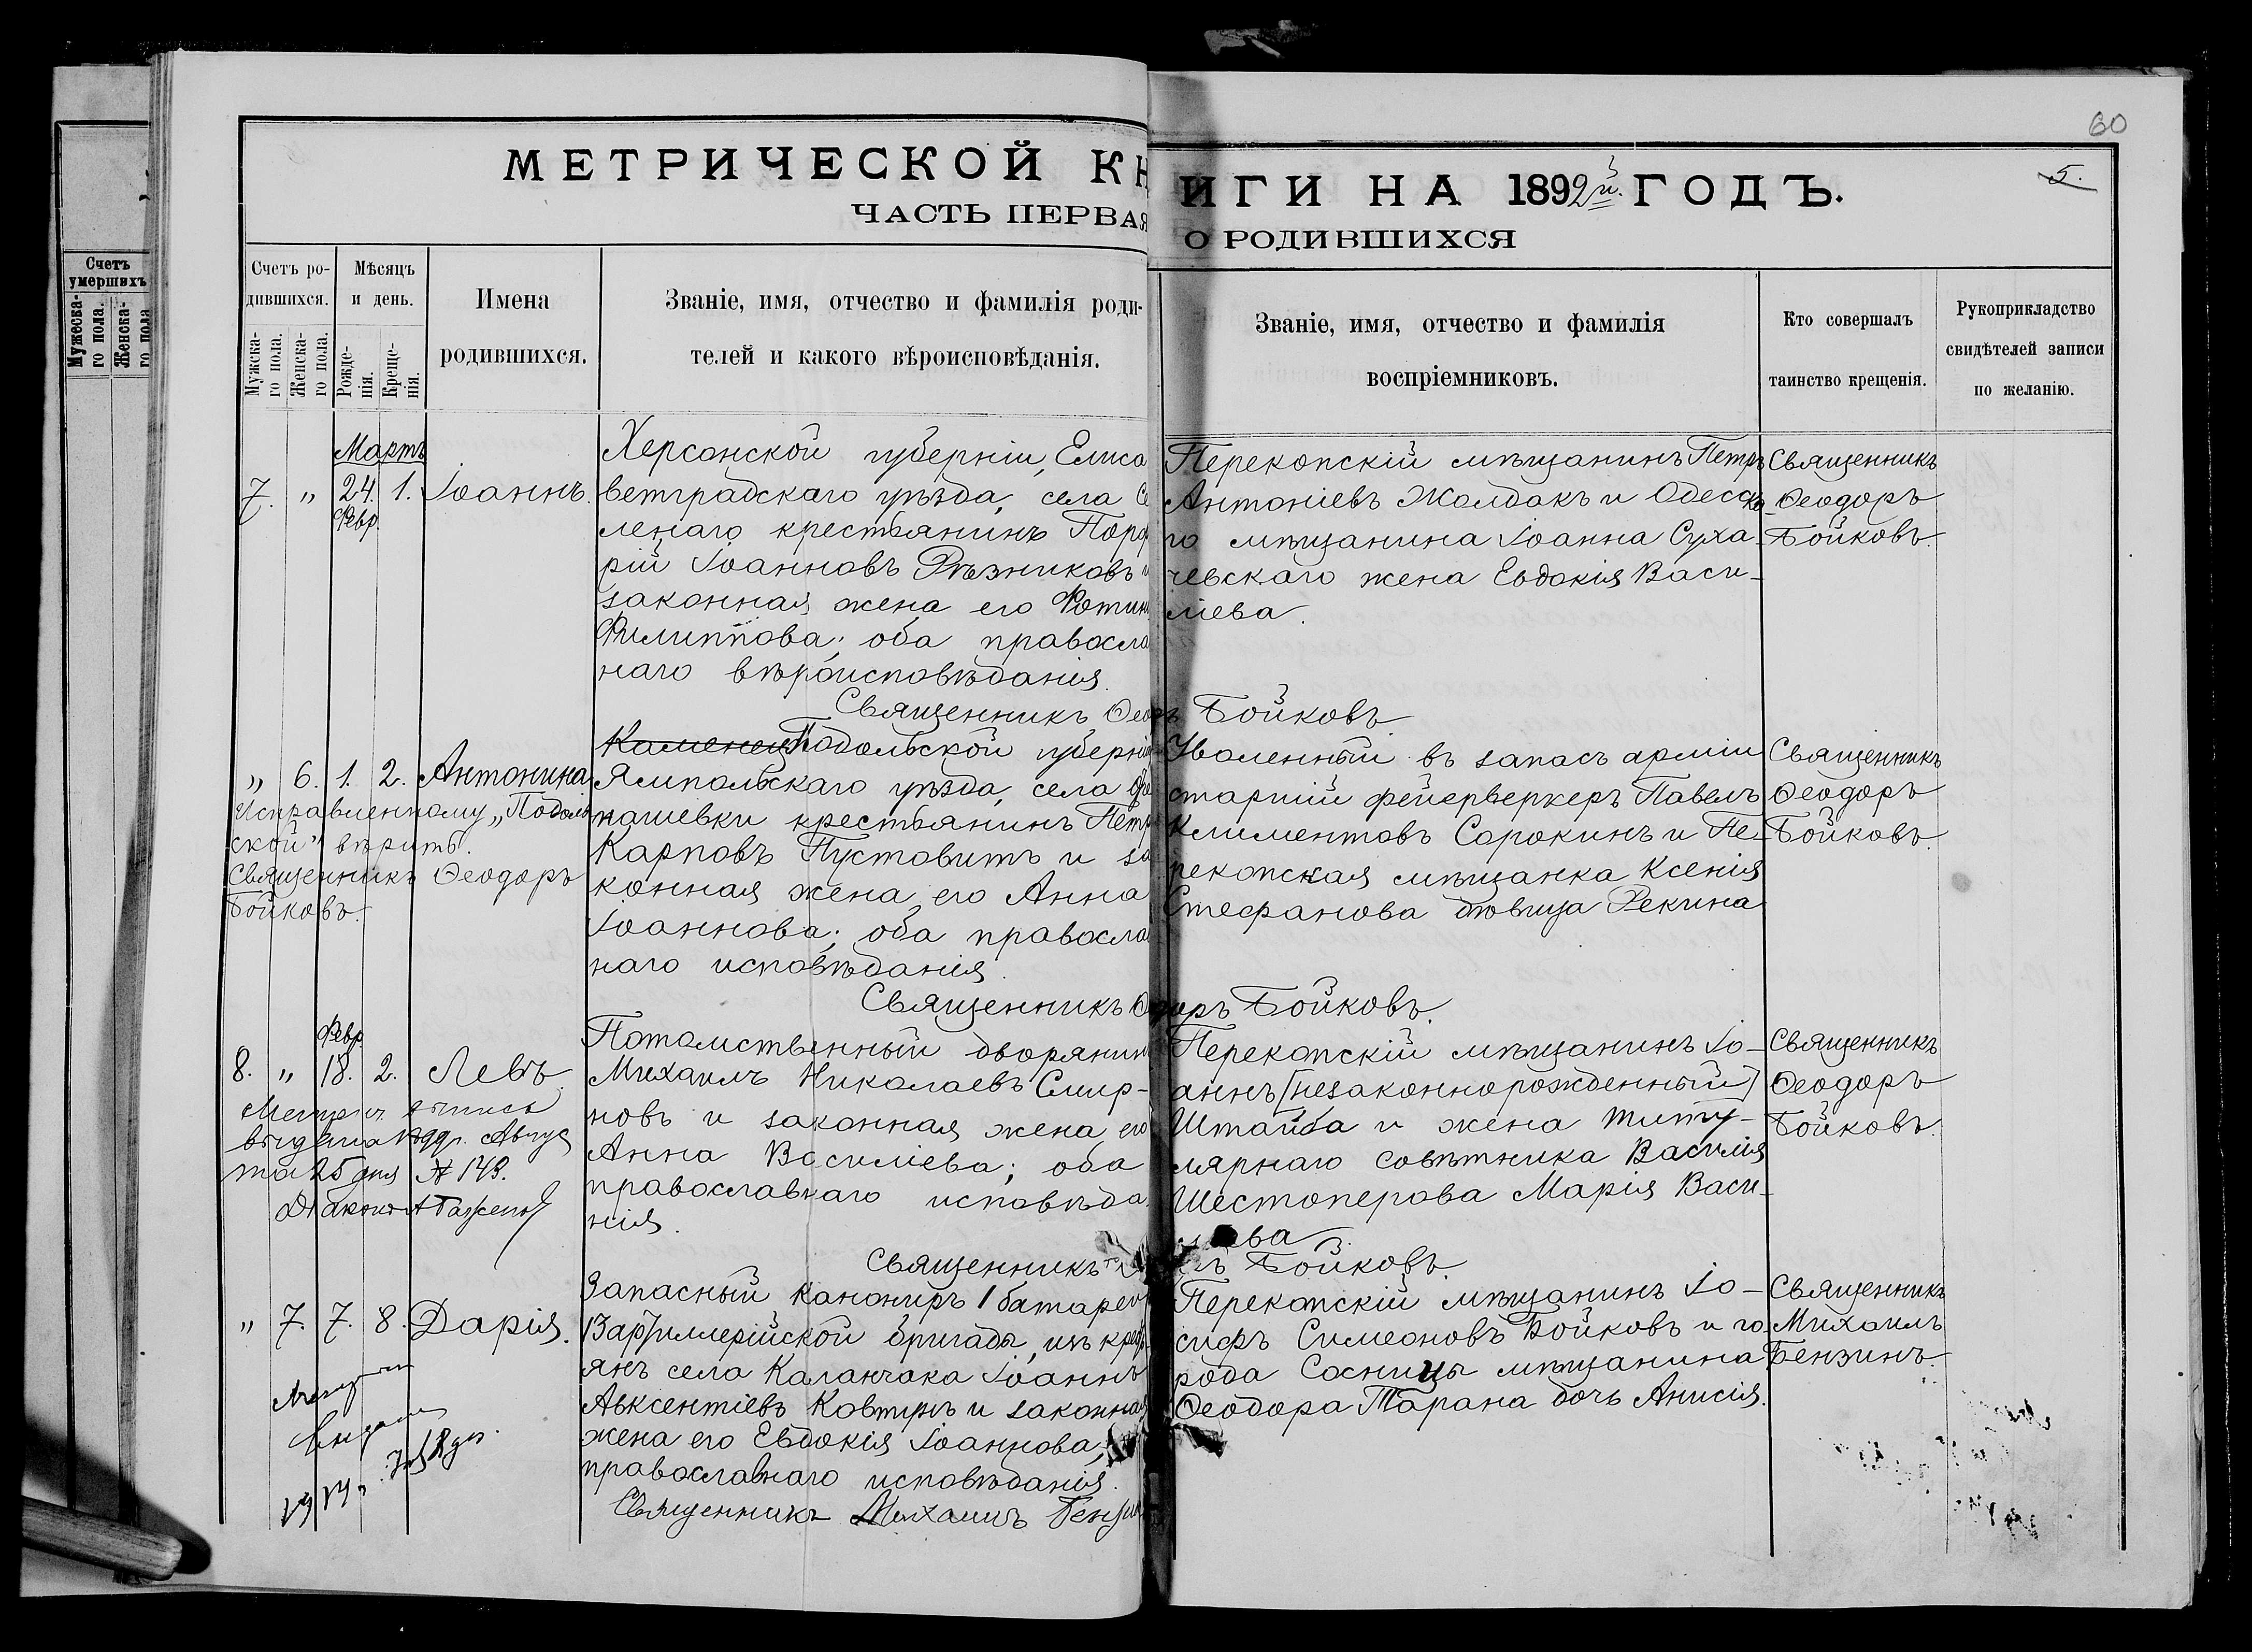 60
5.
МЕТРИЧЕСКОЙ КНИГИ НА 1892й. ГОДЪ.
ЧАСТЬ ПЕРВАЯ О РОДИВШИХСЯ
Счетъ умершихъ
Мужеска-го пола.
Женска-го пола
Счетъ ро-дившихся.
Мужска-го пола.
Женска-го пола.
Мѣсяцъ и день.
Рожде-нія.
Креще-нія.
Имена родившихся.
Званіе, имя, отчество и фамилія роди-
телей и какого вѣроисповѣданія.
Званіе, имя, отчество и фамилія
воспріемниковъ.
Кто совершалъ
таинство крещенія.
Рукоприкладство
свидѣтелей записи
по желанію.
Мартъ
7. " 24. 1. Іоаннъ.
Февр.
Херсонской губерніи, Елиса
ветградскаго уѣзда, села Се
ленаго крестьянинъ Порф
рій Іоанновъ Рѣзниковъ и
законная жена его Фотин
Филиппова; оба правосла
наго вѣроисповѣданія.
Перекопскій мѣщанинъ Петръ
Антоніевъ Жолдакъ и Одесска
го мѣщанина Іоанна Суха-
чевскаго жена Евдокія Васи-
ліева.
Священникъ
Ѳеодоръ
Бойковъ.
Священникъ Ѳеодоръ Бойковъ
" 6. 1. 2. Антонина.
Исправленному „Подоль
ской" вѣрить.
Священникъ Ѳеодоръ
Бойковъ.
Каменец Подольской губерніи
Ямпольскаго уѣзда, села
нашевки крестьянинъ Петръ
Карповъ Пустовитъ и за
конная жена его Анна
Іоаннова; оба правосла
наго исповѣданія.
Уволенный въ запасъ арміи
старшій фейерверкеръ Павелъ
Климентовъ Сорокинъ и Пе-
рекопская мѣщанка Ксенія
Стефанова дѣвица Рекина
Священникъ
Ѳеодоръ
Бойковъ.
Священникъ Ѳеодоръ Бойковъ.
Февр.
8. " 18. 2. Левъ.
Метрич. выпись
выдана Авгус
та 25 дня № 143.
Діаконъ
Потомственный дворянин
Михаилъ Николаевъ Смир-
новъ и законная жена его
Анна Василіева; оба
православнаго исповѣда
нія.
Перекопскій мѣщанинъ Іо-
аннъ [незаконнорожденный]
Штайба и жена титу-
лярнаго совѣтника Василія
Шестоперова Марія Васи-
ліева.
Священникъ
Ѳеодоръ
Бойковъ.
Священникъ Бойковъ.
" 7. 7. 8. Дарія.
Запасный канониръ 1 батареи
артиллерійской бригады, изъ крест
янъ села Каланчака Іоаннъ
Авксентіевъ Ковтунъ и законная
жена его Евдокія Іоаннова,
православнаго исповѣданія.
Перекопскій мѣщанинъ Іо-
сифъ Симеоновъ Бойковъ и го
рода Сосницы мѣщанина
Ѳеодора Тарана дочь Анисія.
Священникъ
Михаилъ
Бензинъ.
Священникъ Михаилъ Бензинъ